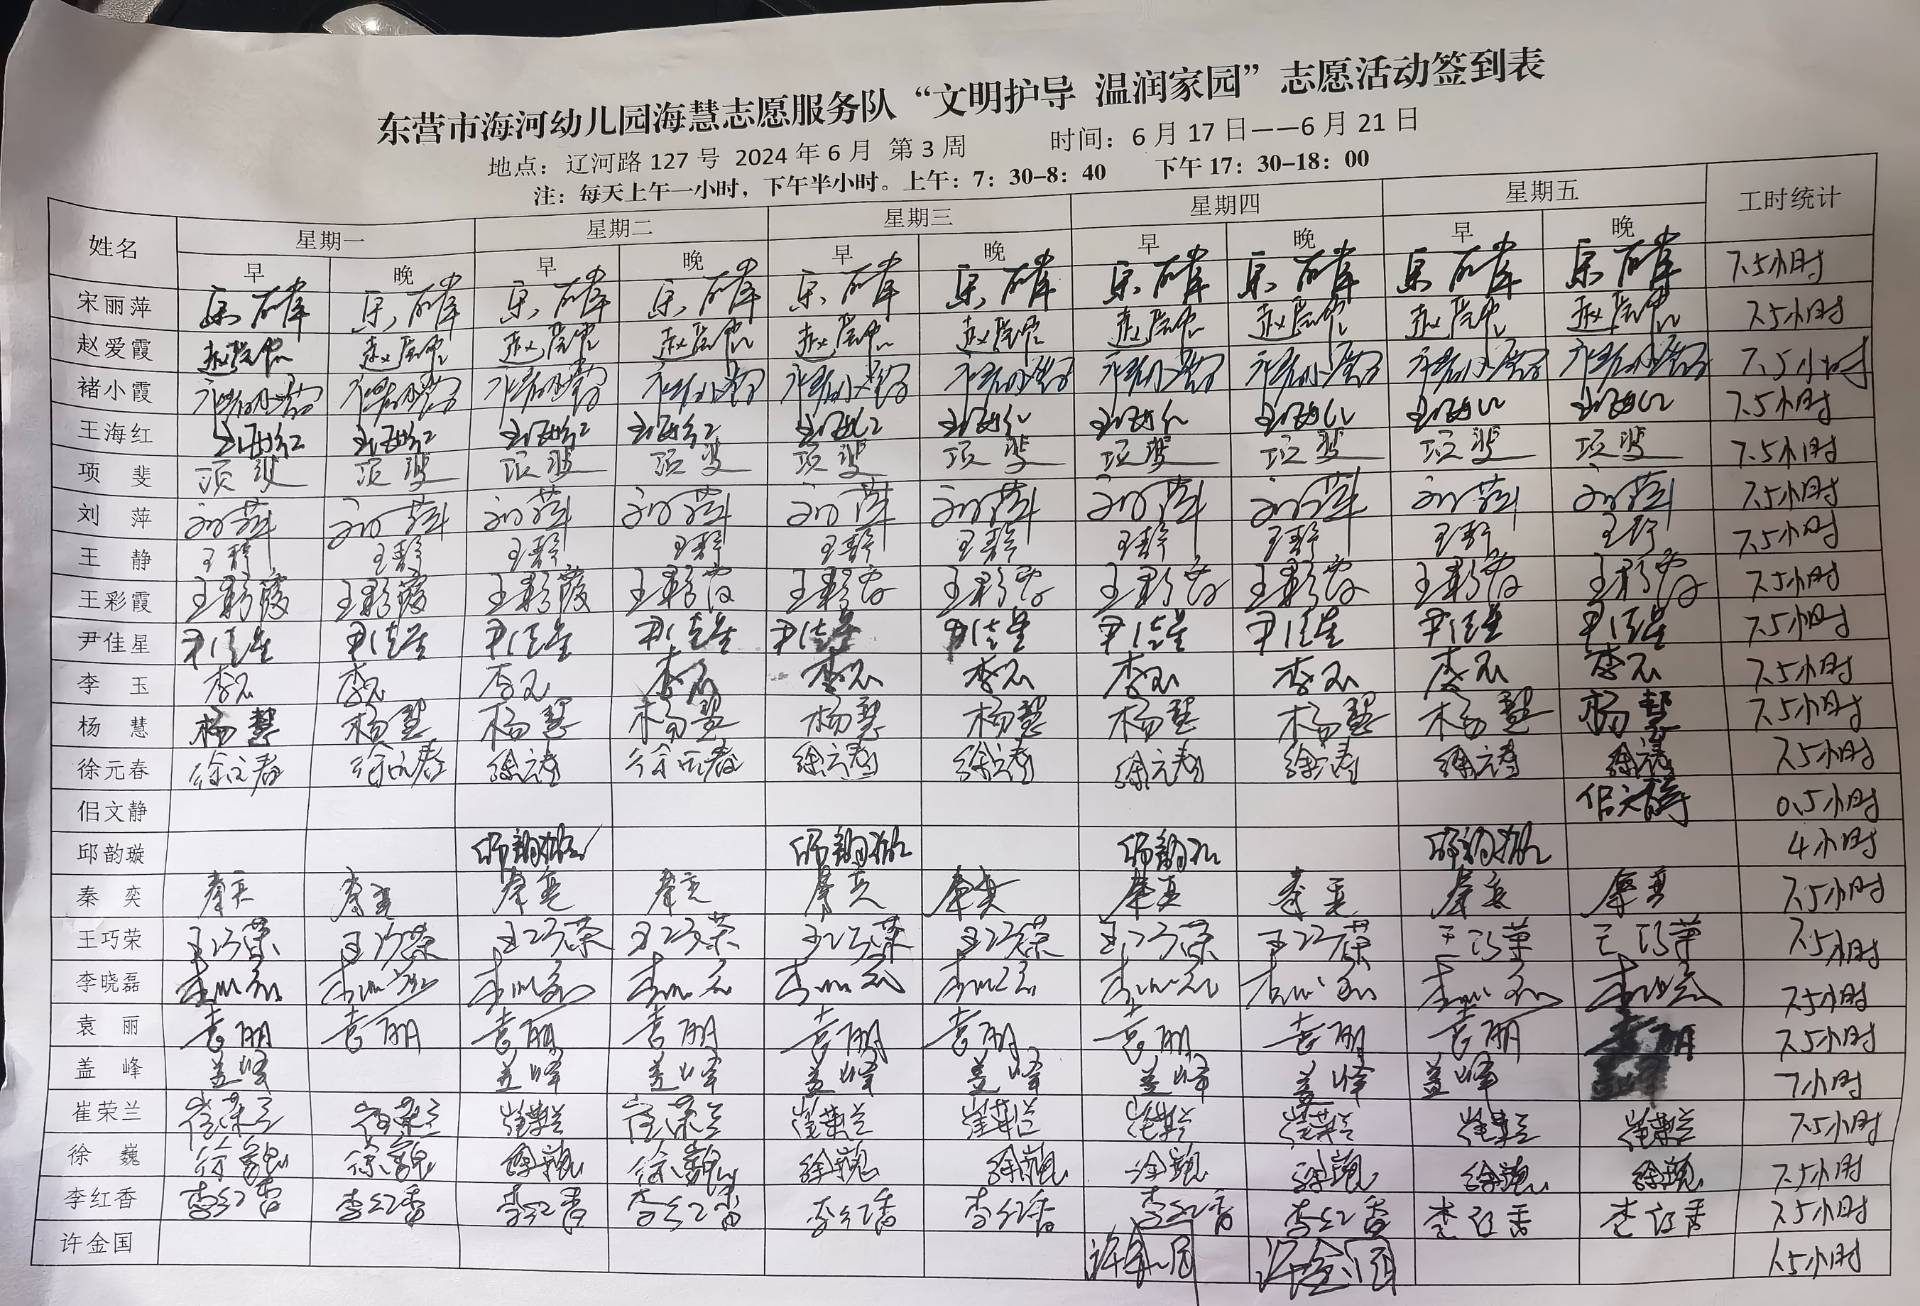 东营市海河幼儿园海慧志愿服务队“文明护导 温润家园”志愿活动签到表
地点：辽河路127号 2024年6月 第3周 时间：6月17日——6月21日
注：每天上午一小时，下午半小时。上午：7：30-8：40 下午17：30-18：00
姓名 星期一 星期二 星期三 星期四 星期五 工时统计
早 晚 早 晚 早 晚 早 晚 早 晚
宋丽萍 7.5小时
赵爱霞 赵爱霞 赵爱霞 赵爱霞 赵爱霞 赵爱霞 赵爱霞 赵爱霞 赵爱霞 赵爱霞 赵爱霞 7.5小时
褚小霞 褚小霞 褚小霞 褚小霞 褚小霞 褚小霞 褚小霞 褚小霞 褚小霞 褚小霞 褚小霞 7.5小时
王海红 王海红 王海红 王海红 王海红 王海红 王海红 王海红 王海红 王海红 王海红 7.5小时
项斐 项斐 项斐 项斐 项斐 项斐 项斐 项斐 项斐 项斐 项斐 7.5小时
刘萍 刘萍 刘萍 刘萍 刘萍 刘萍 刘萍 刘萍 刘萍 刘萍 刘萍 7.5小时
王静 王静 王静 王静 王静 王静 王静 王静 王静 王静 王静 7.5小时
王彩霞 王彩霞 王彩霞 王彩霞 王彩霞 王彩霞 王彩霞 王彩霞 王彩霞 王彩霞 王彩霞 7.5小时
尹佳星 尹佳星 尹佳星 尹佳星 尹佳星 尹佳星 尹佳星 尹佳星 尹佳星 尹佳星 尹佳星 7.5小时
李玉 李玉 李玉 李玉 李玉 李玉 李玉 李玉 李玉 李玉 李玉 7.5小时
杨慧 杨慧 杨慧 杨慧 杨慧 杨慧 杨慧 杨慧 杨慧 杨慧 杨慧 7.5小时
徐元春 徐元春 徐元春 徐元春 徐元春 徐元春 徐元春 徐元春 徐元春 徐元春 徐元春 7.5小时
佀文静 佀文静 0.5小时
邱韵璇 邱韵璇 邱韵璇 邱韵璇 邱韵璇 4小时
秦奕 秦奕 秦奕 秦奕 秦奕 秦奕 秦奕 秦奕 秦奕 秦奕 秦奕 7.5小时
王巧荣 王巧荣 王巧荣 王巧荣 王巧荣 王巧荣 王巧荣 王巧荣 王巧荣 王巧荣 王巧荣 7.5小时
李晓磊 7.5小时
袁丽 袁丽 袁丽 袁丽 袁丽 袁丽 袁丽 袁丽 袁丽 袁丽 袁丽 7.5小时
盖峰 盖峰 盖峰 盖峰 盖峰 盖峰 盖峰 盖峰 盖峰 盖峰 7小时
崔荣兰 崔荣兰 崔荣兰 崔荣兰 崔荣兰 崔荣兰 崔荣兰 崔荣兰 崔荣兰 崔荣兰 崔荣兰 7.5小时
徐巍 徐巍 徐巍 徐巍 徐巍 徐巍 徐巍 徐巍 徐巍 徐巍 徐巍 7.5小时
李红香 李红香 李红香 李红香 李红香 李红香 李红香 李红香 李红香 李红香 李红香 7.5小时
许金国 许金国 许金国 1.5小时